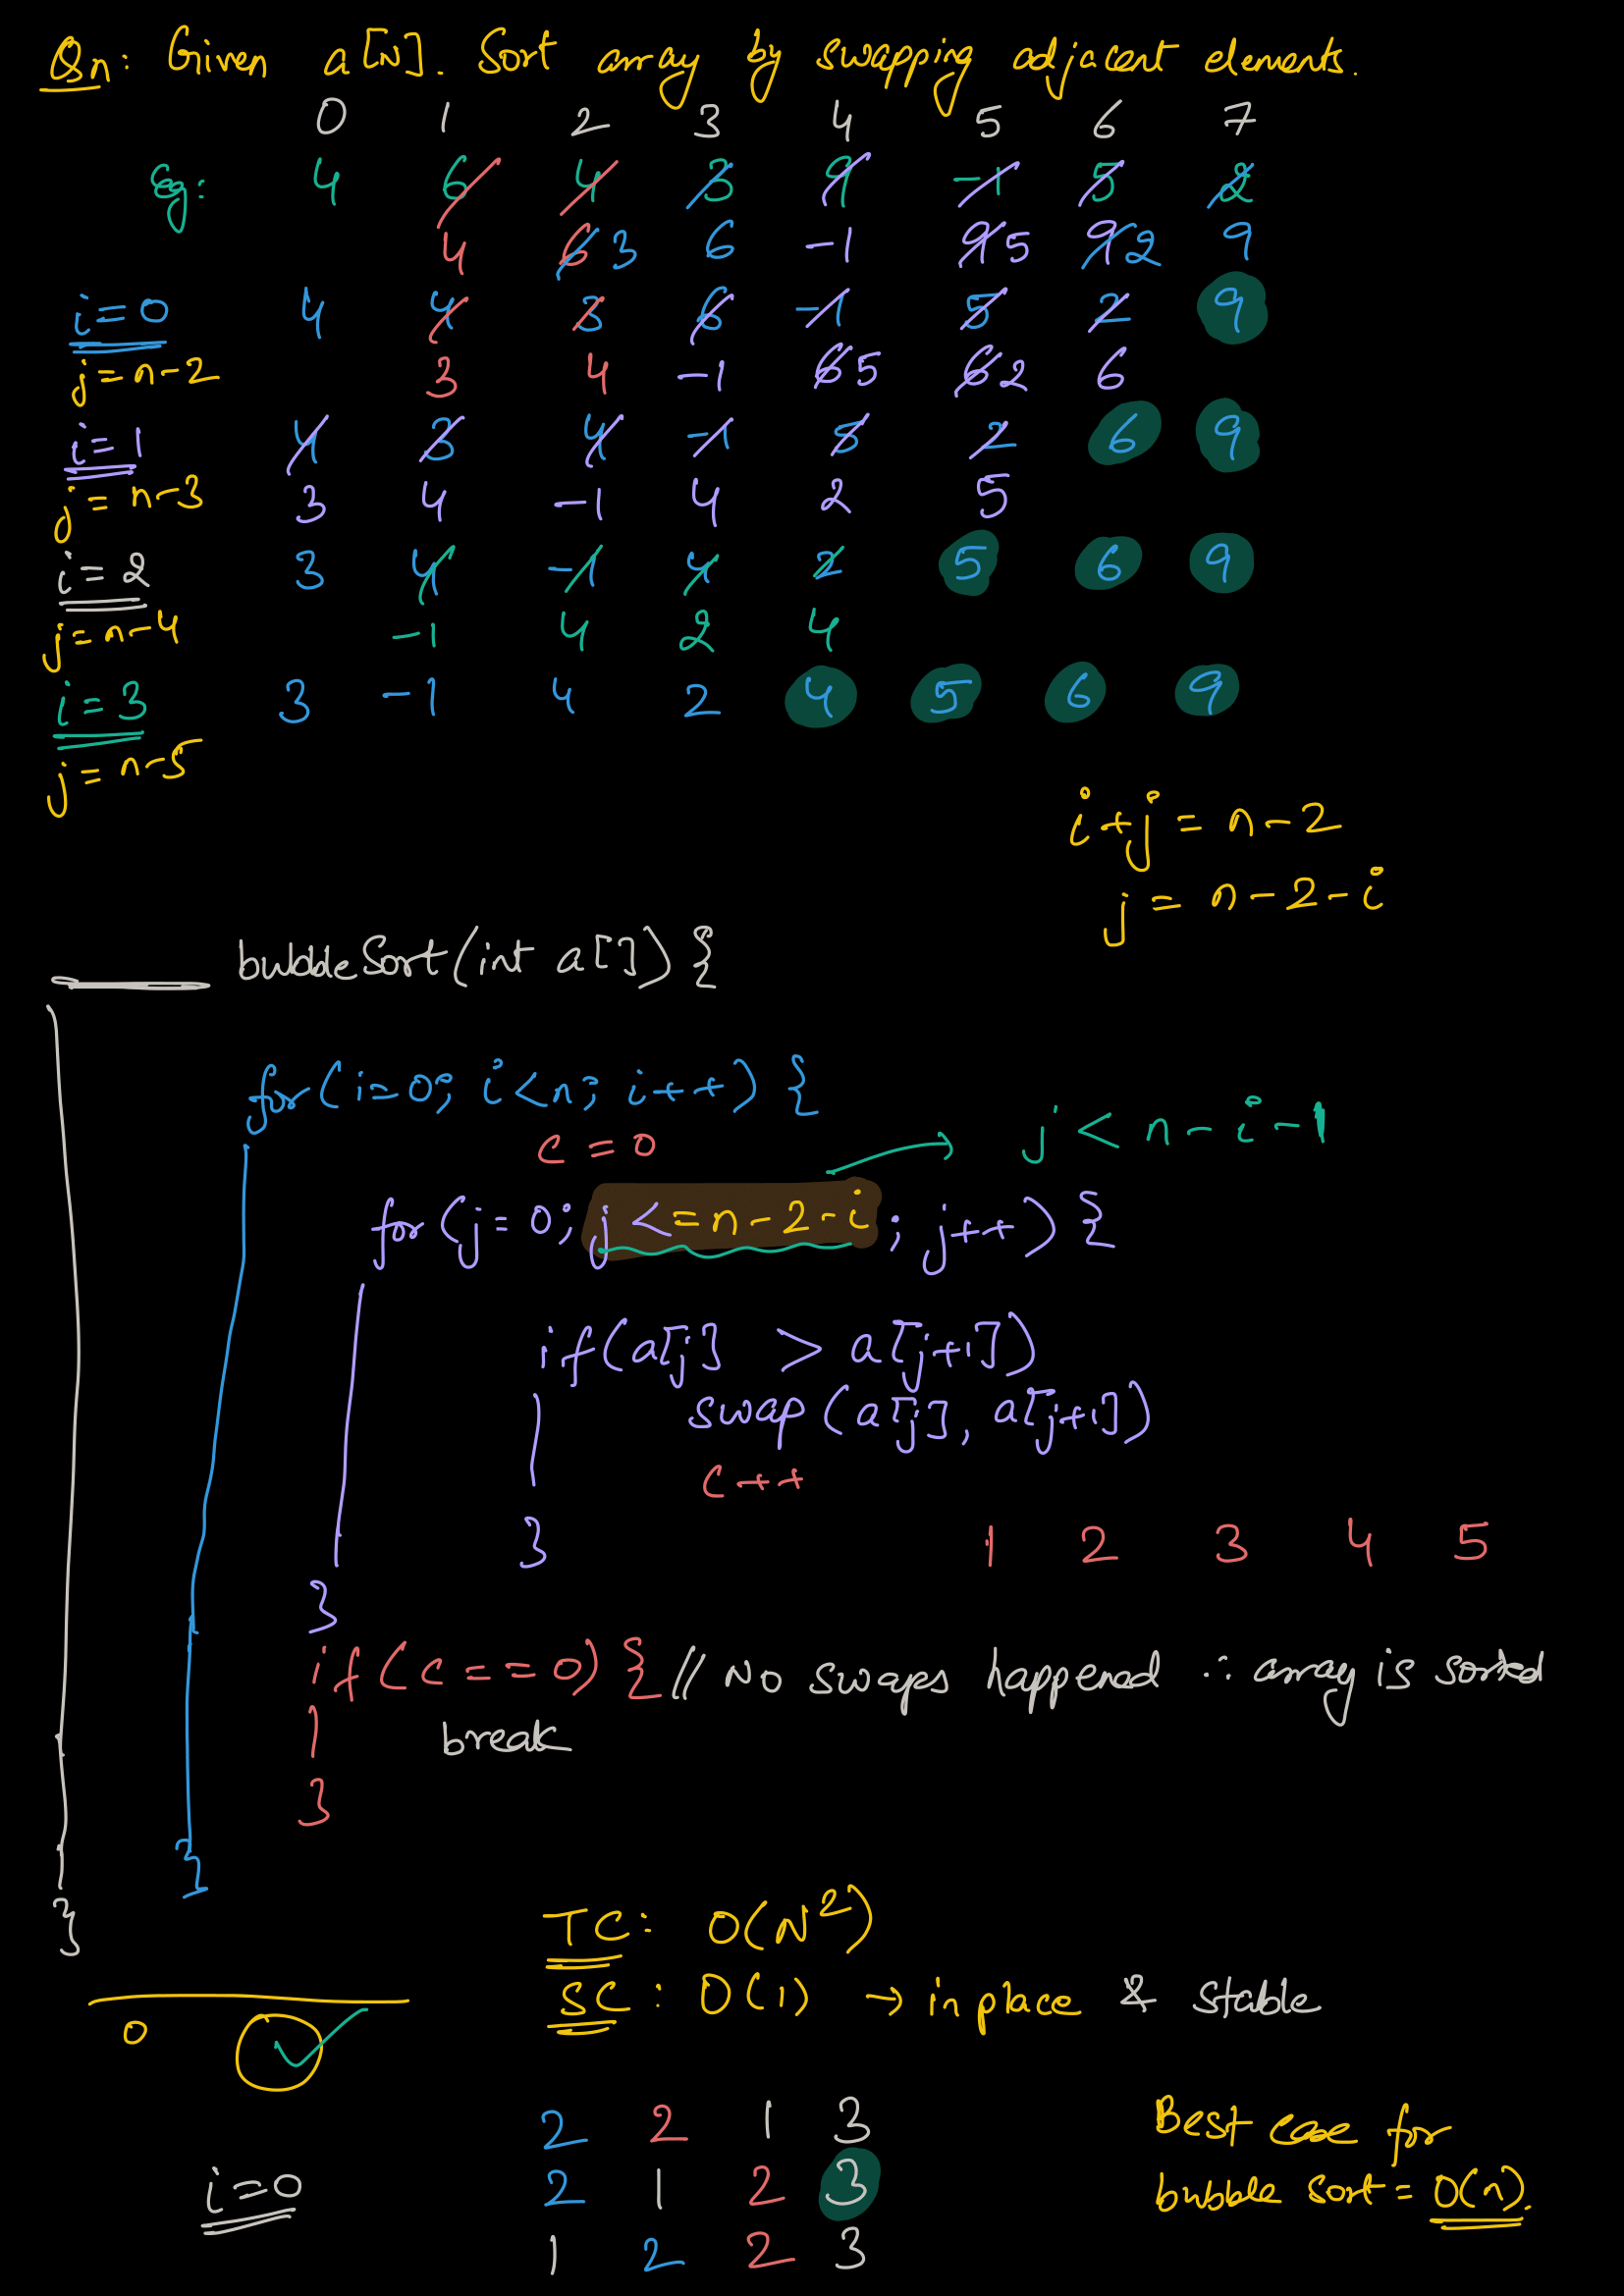 Qn: Given a[N]. Sort array by swapping adjacent elements.
0 1 2 3 4 5 6 7
Eg: 4 6 4 3 9 -1 5 2
4 6 3 6 -1 9 5 9 2 9
i=0 4 4 3 6 -1 5 2 9
j=n-2 3 4 -1 6 5 6 2 6
i=1 4 3 4 -1 5 2 6 9
j=n-3 3 4 -1 4 2 5
i=2 3 4 -1 4 2 5 6 9
j=n-4 -1 4 2 4
i=3 3 -1 4 2 4 5 6 9
j=n-5
i+j = n-2
j = n-2-i
bubbleSort(int a[]) {
for(i=0; i<n; i++) {
c = 0
j < n-i-1
for(j=0; j<=n-2-i; j++) {
if(a[j] > a[j+1])
swap(a[j], a[j+1])
c++
}
1 2 3 4 5
}
if(c==0) { // No swaps happened ∴ array is sorted
break
}
}
}
TC: O(N²)
SC: O(1) → in place & stable
0 ✓
2 2 1 3
i=0 2 1 2 3
1 2 2 3
Best case for
bubble sort = O(n).